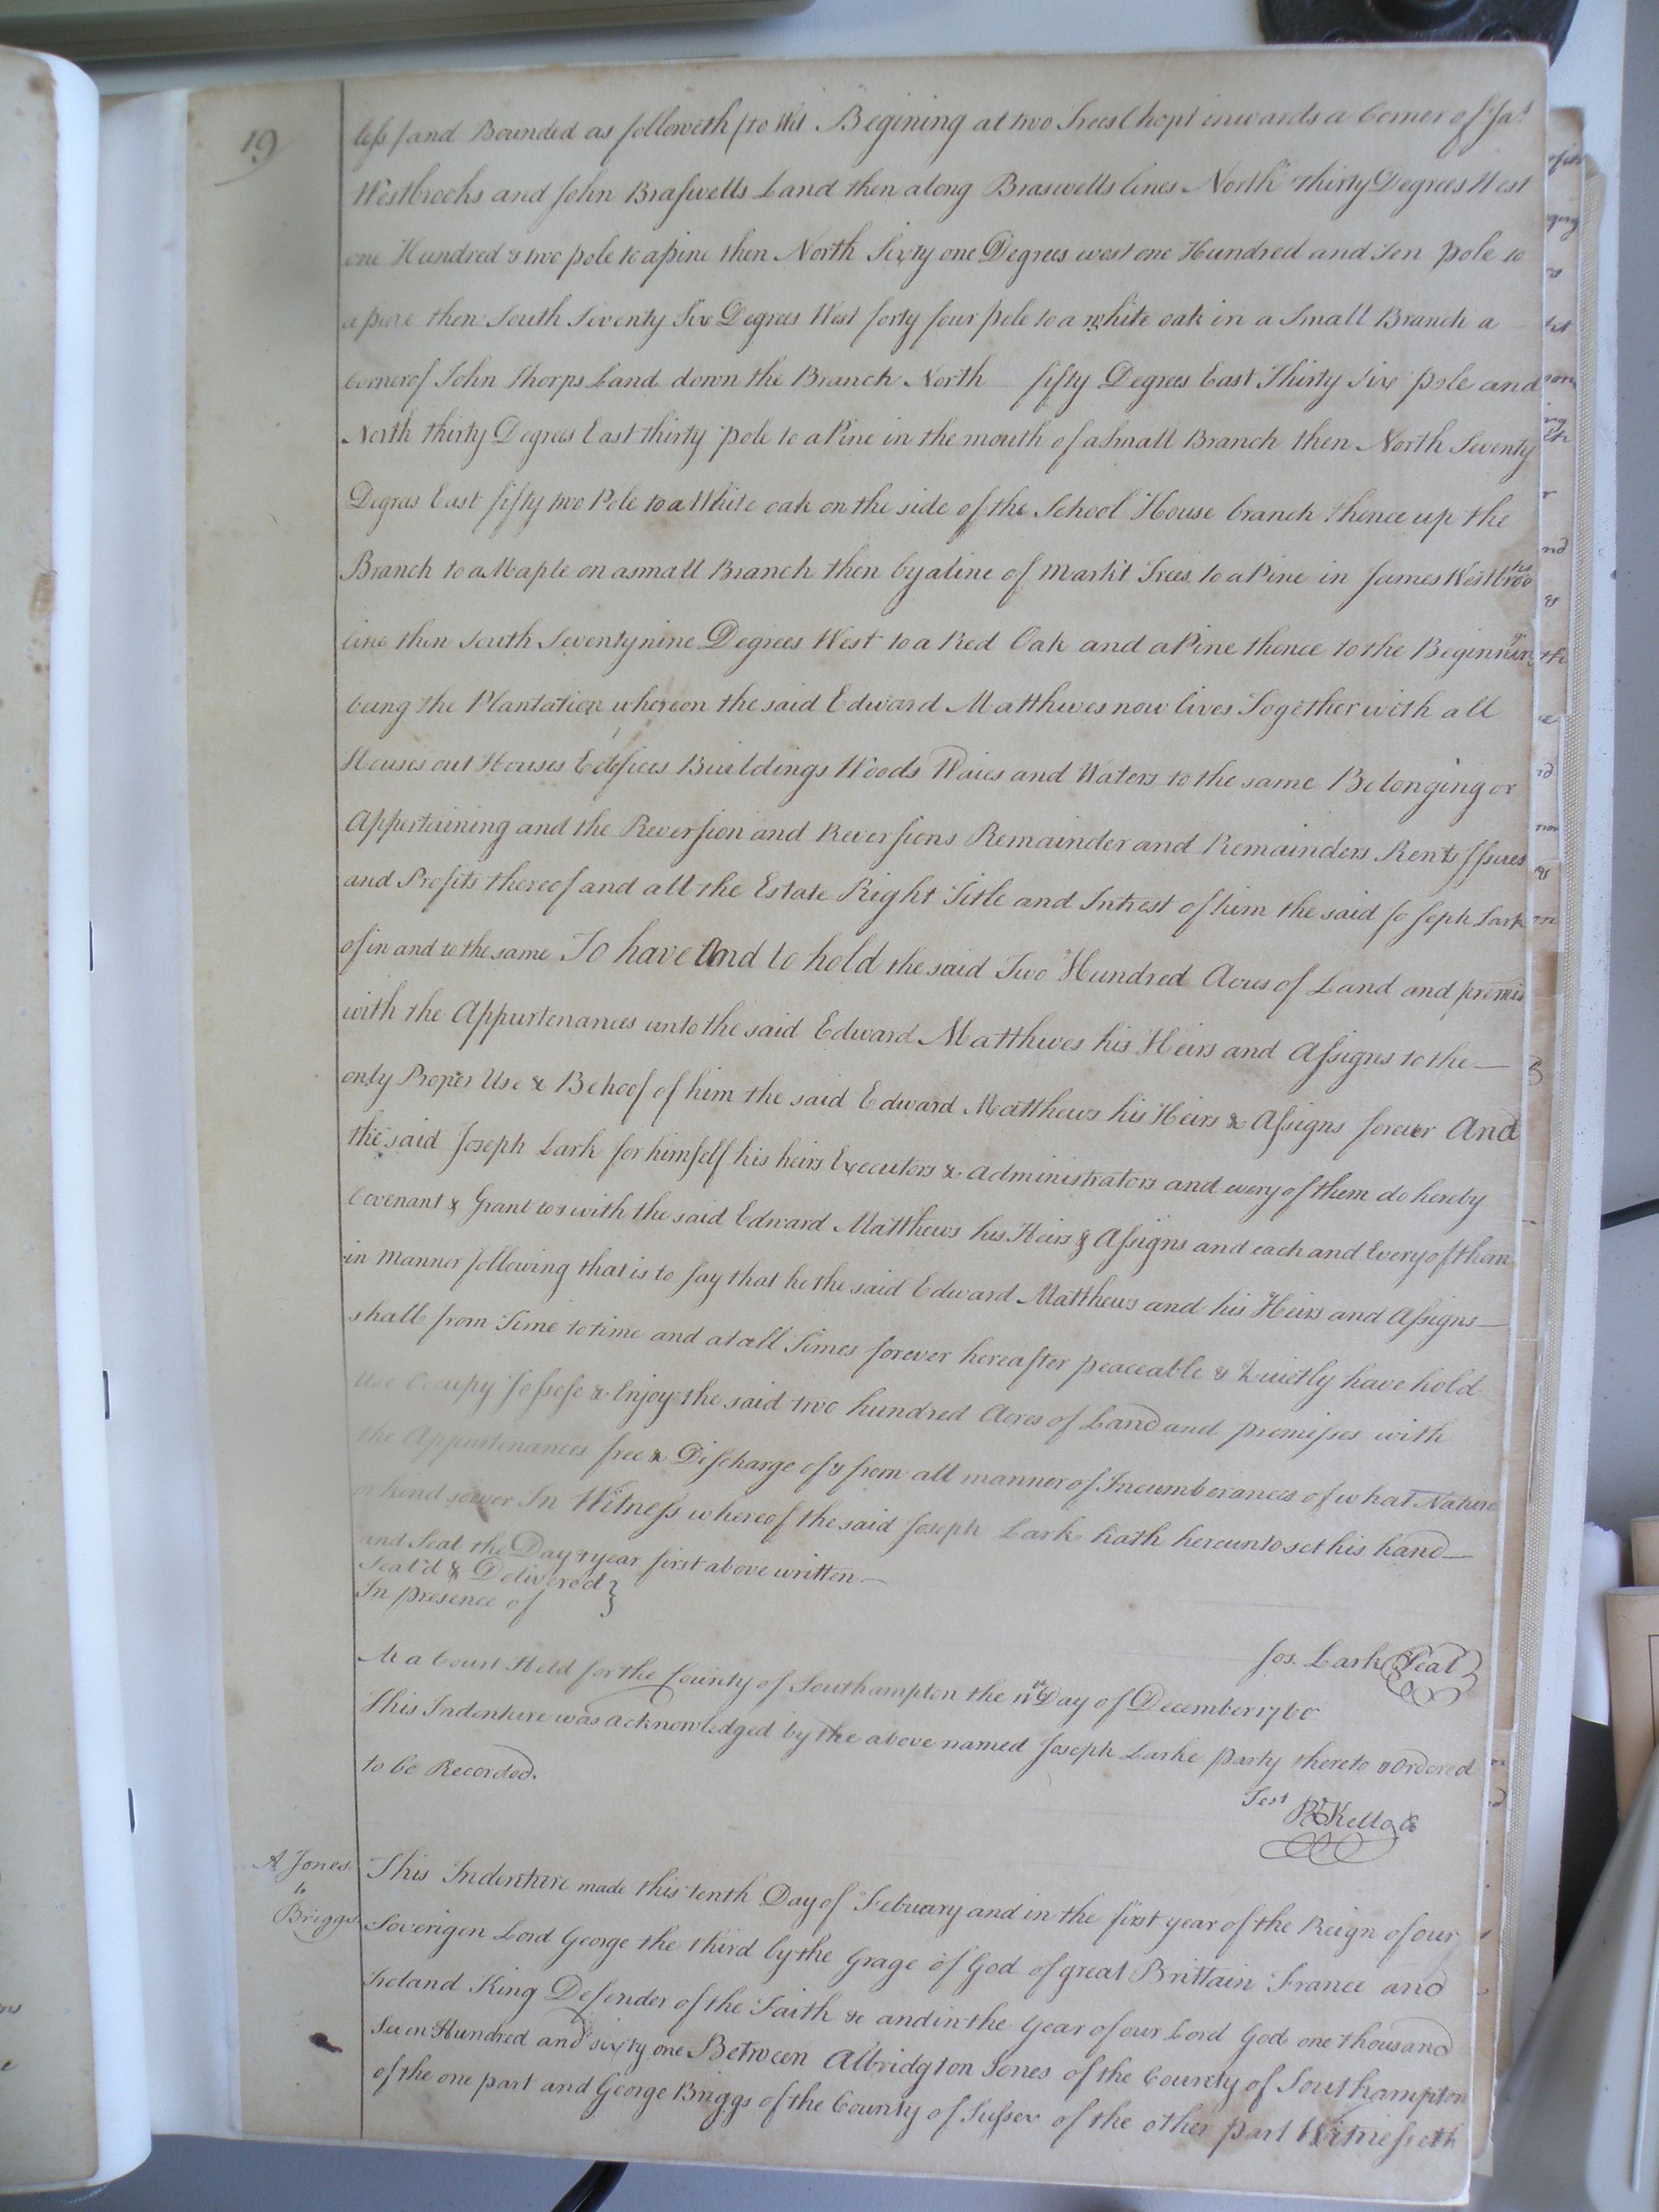 19
less/and Bounded as followeth/to Wit Begining at two Trees Chopt inwards a Corner of Jas
Westbrooks and John Braswells Land then along Braswells lines North thirty Degrees West
one Hundred & two pole to a pine then North Sixty one Degrees west one Hundred and Ten pole to
a pine then South Seventy Six Degrees West forty four pole to a white oak in a Small Branch a
Corner of John Thorps Land down the Branch North fifty Degrees East Thirty Six pole and
North thirty Degrees East thirty pole to a Pine in the mouth of a small Branch then North Seventy
Degrees East fifty two Pole to a White oak on the side of the School House branch thence up the
Branch to a Maple on a small Branch then by a line of markt Trees to a Pine in James Westbrooks
line then South Seventy nine Degrees West to a Red Oak and a Pine thence to the Beginning
being the Plantation whereon the said Edward Matthwes now lives Together with all
Houses out Houses Edefices Buildings Woods Waies and Waters to the same Belonging or
Appertaining and the Reversion and Reversions Remainder and Remainders Rents Issues
and Profits thereof and all the Estate Right Title and Intrest of him the said Joseph Lark
of in and to the same To have And to hold the said Two Hundred Acres of Land and premis
with the Appurtenances unto the said Edward Matthwes his Heirs and Assigns to the
only Proper Use & Behoof of him the said Edward Matthews his Heirs & Assigns forever And
the said Joseph Lark for himself his heirs Executors & Administrators and every of them do hereby
Covenant & Grant to & with the said Edward Matthews his Heirs & Assigns and each and Every of them
in Manner following that is to say that he the said Edward Matthews and his Heirs and Assigns
shall from Time to time and at all Times forever hereafter peaceable & Quietly have hold
use Occupy Possess & Enjoy the said two hundred Acres of Land and premisses with
the Appurtenances free & Discharge of & from all manner of Incumberances of what Nature
or kind soever In Witness whereof the said Joseph Lark hath hereunto set his hand
and Seal the Day & year first above written
Seal'd & Delivered }
In presence of
Jos. Lark Seal
At a Court Held for the County of Southampton the 11th Day of December 1760
This Indenture was acknowledged by the above named Joseph Larke party thereto & Ordered
to be Recorded.
Test
R Kello
A Jones
to
Briggs
This Indenture made this tenth Day of Febuary and in the first year of the Reign of our
Soverigen Lord George the third by the Grage of God of great Brittain France and
Ireland King Defender of the Faith &c and in the Year of our Lord God one thousand
Seven Hundred and sixty one Between Albridgton Jones of the County of Southampton
of the one part and George Briggs of the County of Sussex of the other part Witnesseth